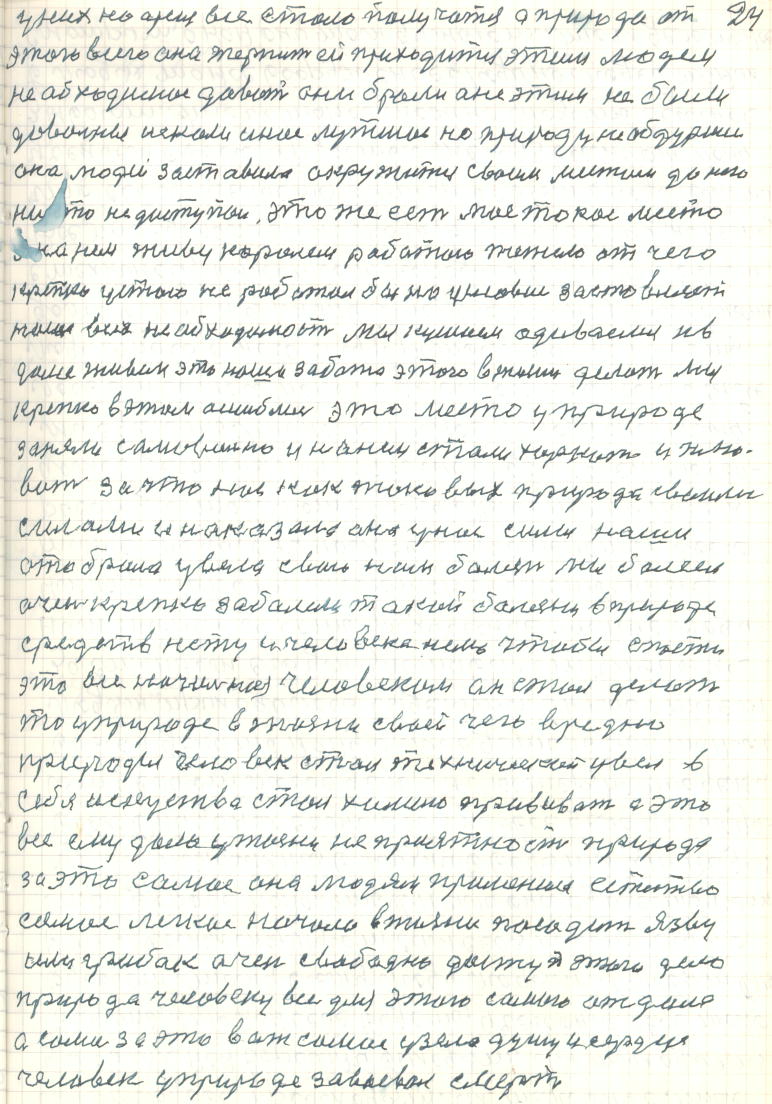 у них на арен все стало получатся а природа от 24
этого всего она терпит ей приходится этим людем
необходимое дават они брали ане этим не были
доволны искали иное лутшие но природу необдуриш
она людей заставила окружится своим местом до кого
никто не доступен, это же ест мое токое место
я на нем живу королем работаю тежело от чего
крепко устаю не работал бы но условие заставляет
наша всех необходимост мы кушаем одиваемся и в
доме живем это наша забота этого в жизни делат мы
крепко в этом ошиблис это место у природе
заняли самовольно и на нем стали харкат и плю-
ват за что нас как таковых природа своими
силами и наказала она у нас силы наши
отобрала увела свою нам болезн мы болеем
очен крепко забалели такой болезни в природе
средств нету и человека нема чтобы спасти
это все начинает человеком он стал делат
то у природе в жизни своей чего вредно
природы человек стал технический увел в
себя искуства стал химию прививат а это
все ему дало у жизни неприятност природа
за это самое она людям применила естество
самое легкое начало в жизни посадит язву
или грибок очен свободно доступ этого дела
природа человеку все для этого самого отдала
а сама за это вот самое узела душу и сердце
человек у природе завоевал смерт